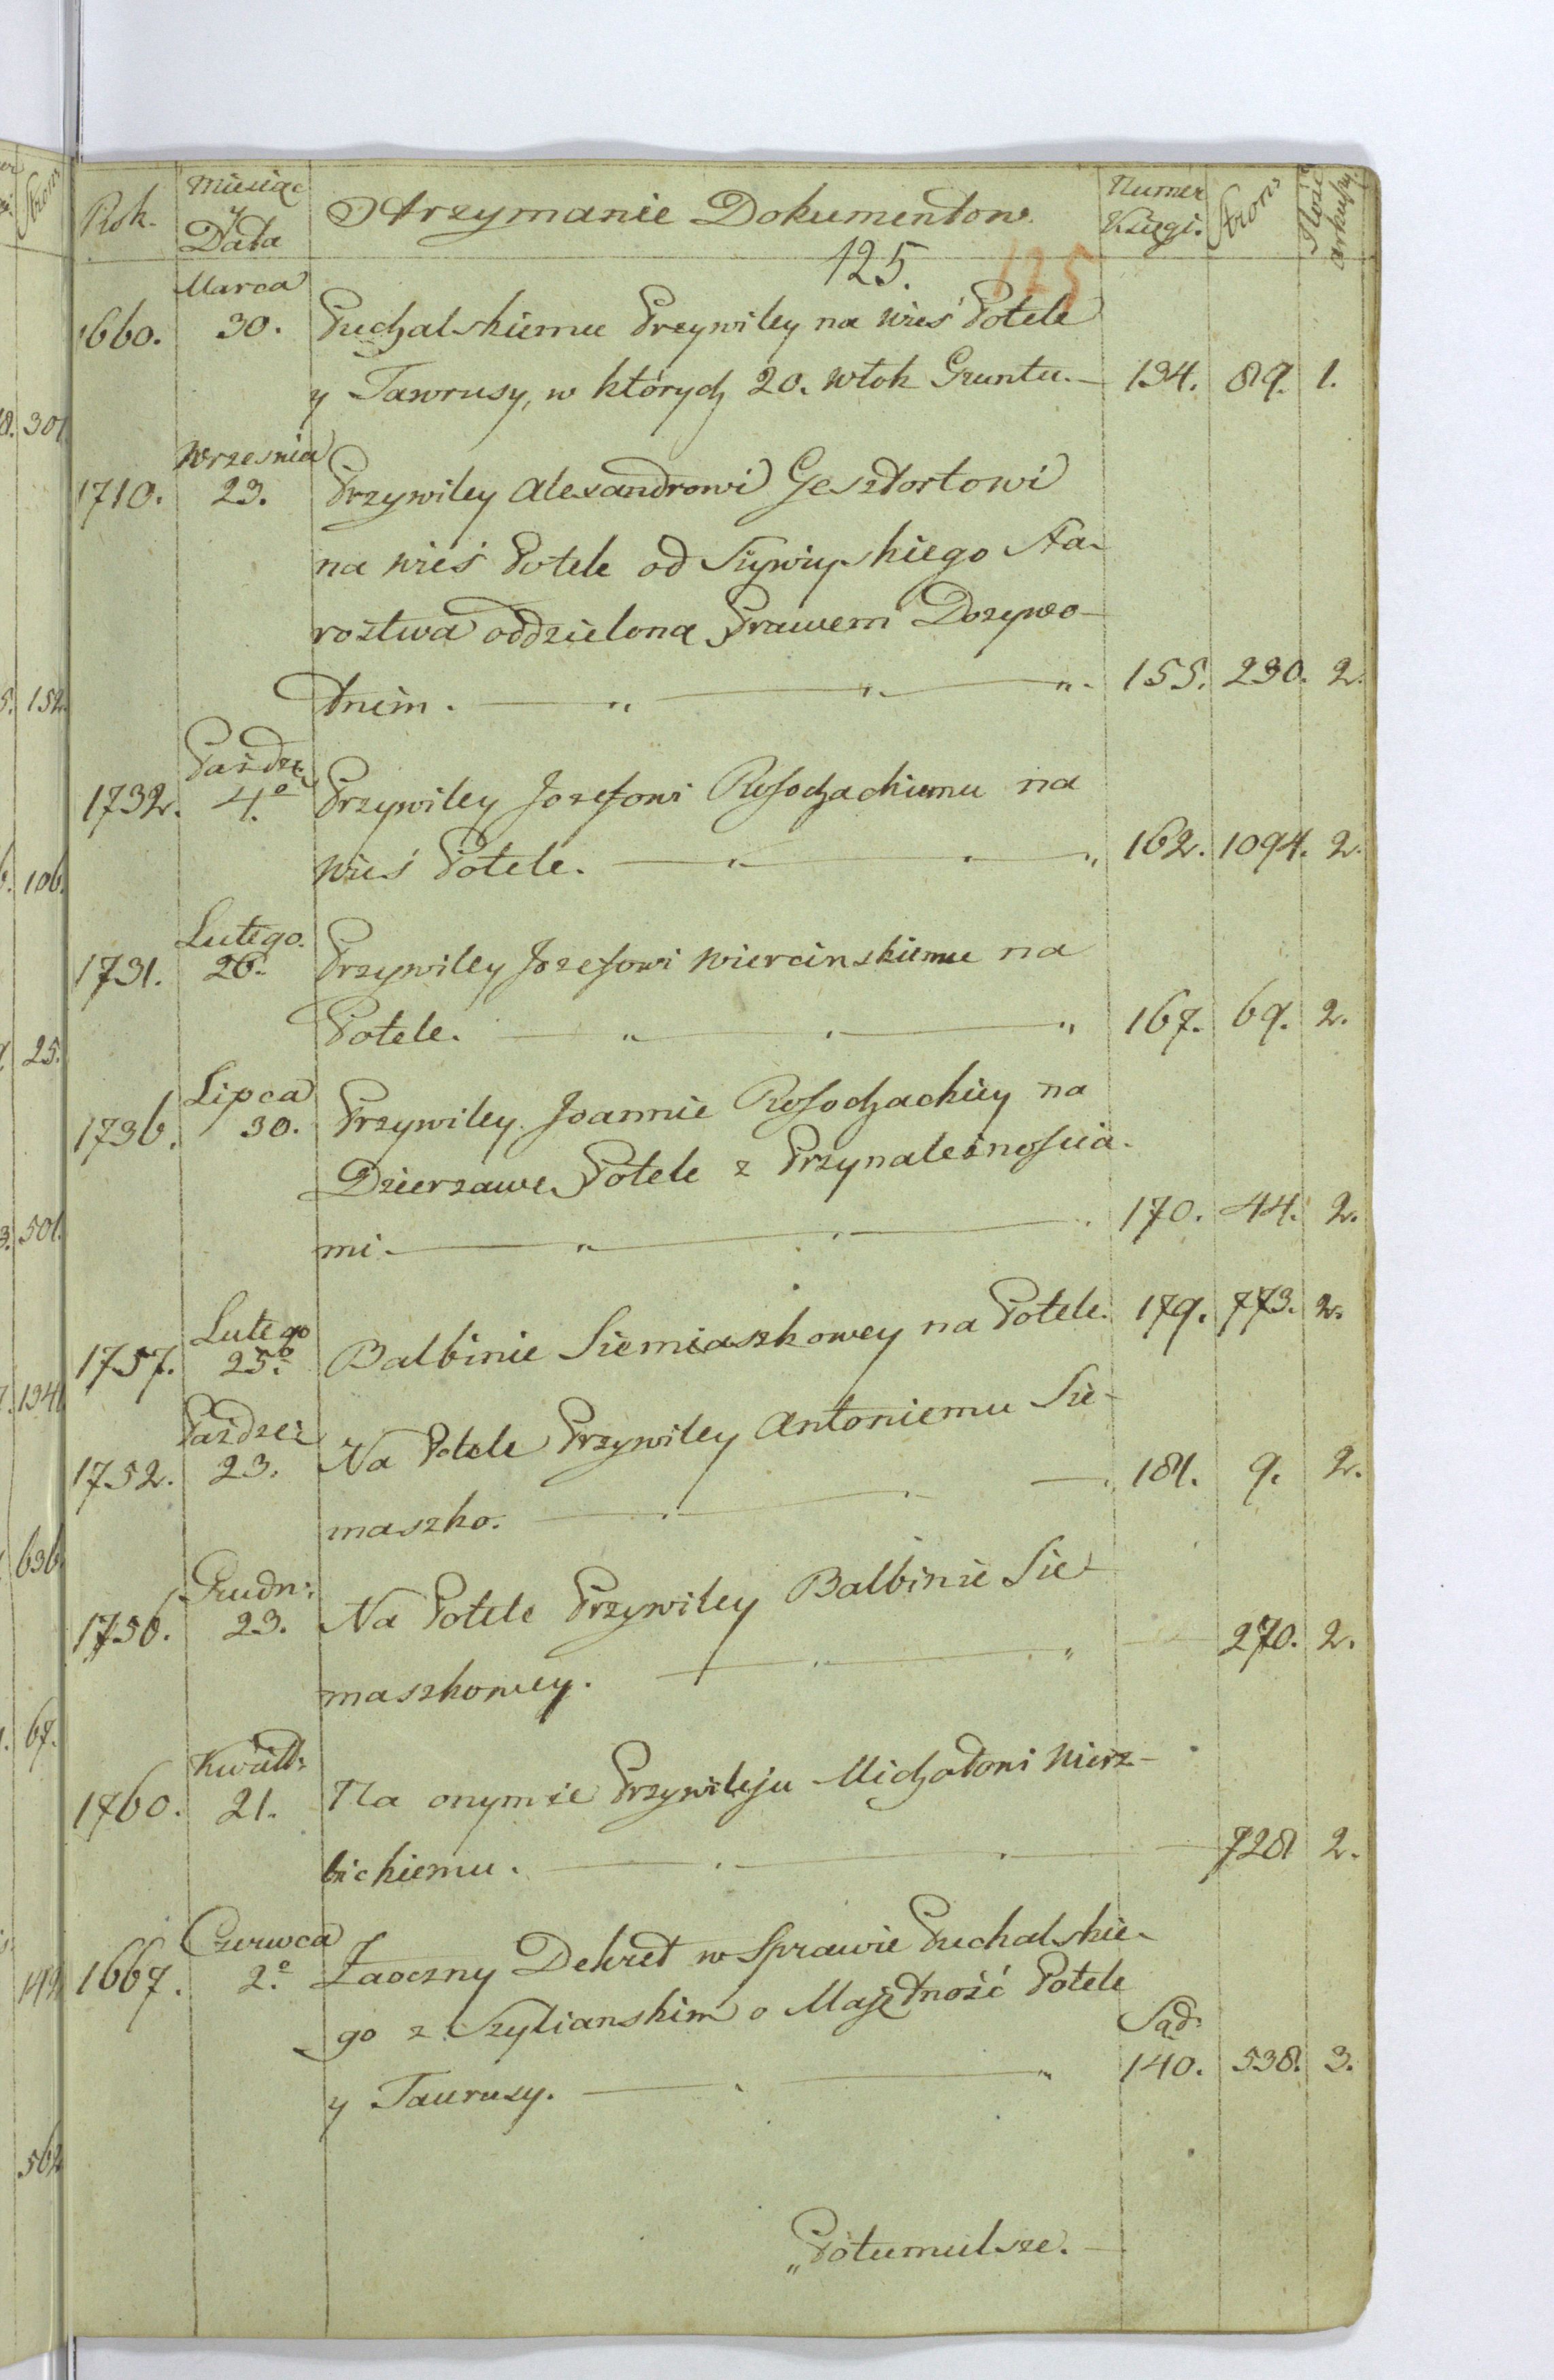 Rok. Miesiąc y Data Otrzymanie Dokumentow. Numer Księgi. Stron Ilość arkuszy.
125. 125
Marca
1660. 30. Puchalskiemu Przywiley na wieś Potele
y Tawrusy, w których 20. włok Gruntu. 134. 89. 1.
Wrzesnia
1710. 23. Przywiley Alexandrowi Gesztortowi
na wieś Potele od Sta-
rostwa oddzieloną Prawem Dozywo-
tnim. 155. 230. 2.
Paźdz:
1732. 4.º Przywiley Jozefowi Rosochackiemu na
wieś Potele. 162. 1094. 2.
Lutego.
1731. 26. Przywiley Jozefowi Wiercinskiemu na
Potele. 167. 69. 2.
Lipca
1736. 30. Przywiley Joannie Rosochackiey na
Dzierzawę Potele z Przynależnościa-
mi 170. 44. 2.
Lutego
1757. 25. Balbinie Siemiaszkowey na Potele. 179. 773. 2.
Paździe:
1752. 23. Na Potele Przywiley Antoniemu Sie-
maszko. 181. 9. 2.
Grudn:
1750. 23. Na Potele Przywiley Balbinie Sie-
maszkowey. 270. 2.
Kwiet:
1760. 21. Na onymże Przywileju Michałowi Wierz-
bickiemu. 728 2.
Czerwca
1667. 2.º Zaoczny Dekret w Sprawie Puchalskie-
go z Szylianskim o Majętność Potele
Sąd:
y Taurusy. 140. 538. 3.
„Potumulsze.
301
152.
106.
25.
501.
134
636
67.
562